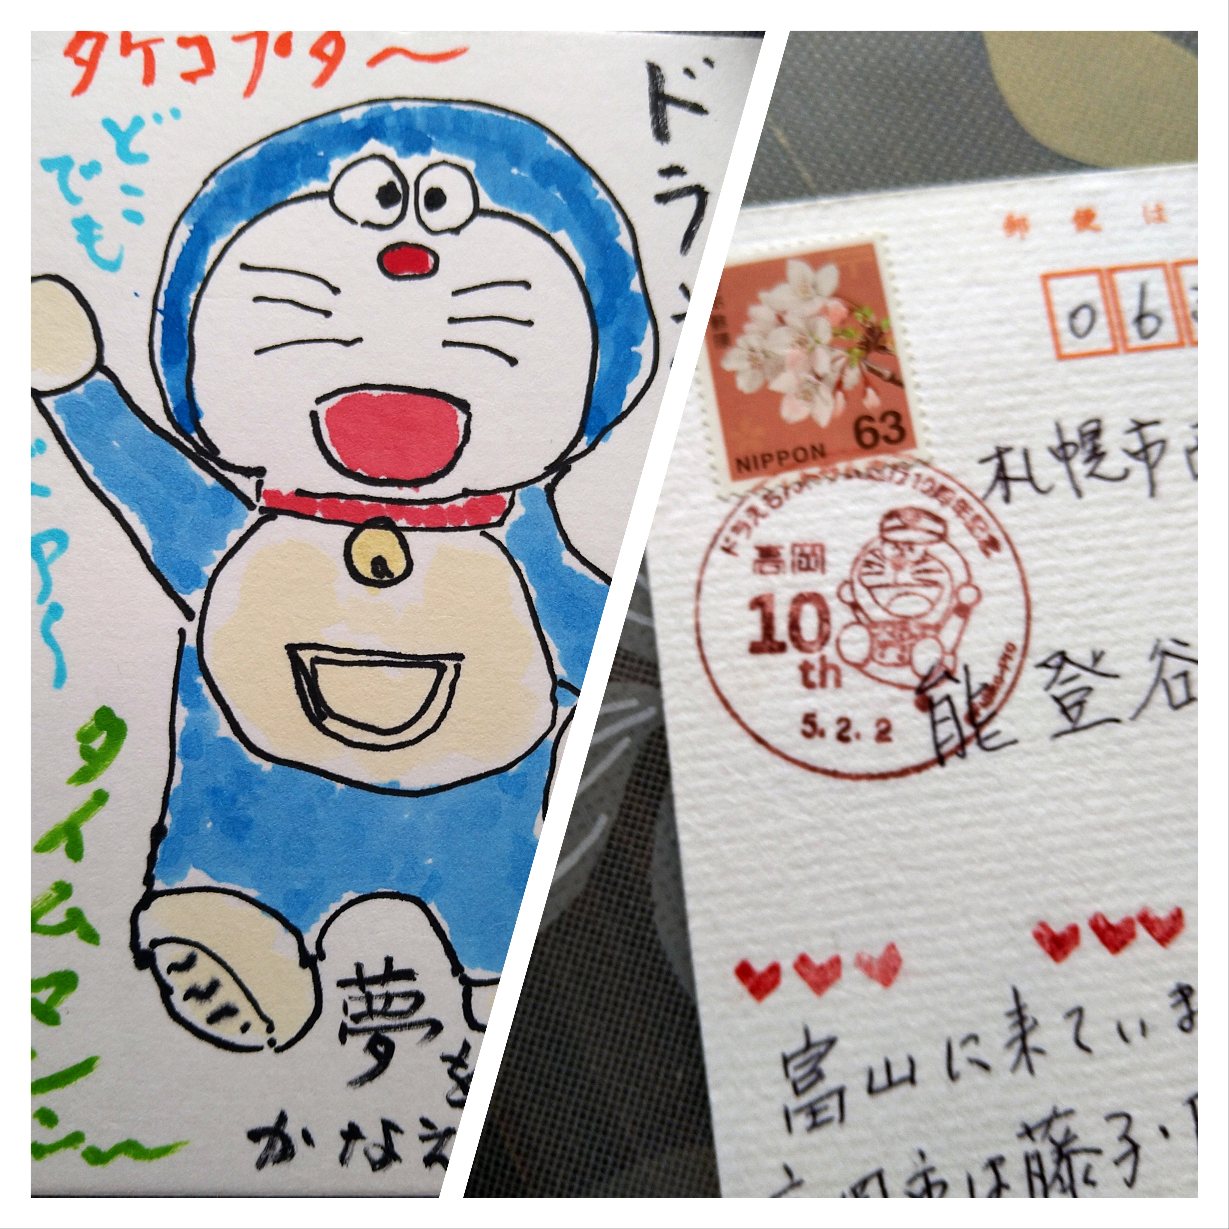 タケコプター〜
どこ
でも
ドア〜
タイムマシン〜
ドラ
夢を
かなえ
郵便は
06
NIPPON
63
札幌市
ドラえもん
10周年記念
高岡
10
th
5.2.2
能登谷
富山に来ていま
高岡市は藤子・